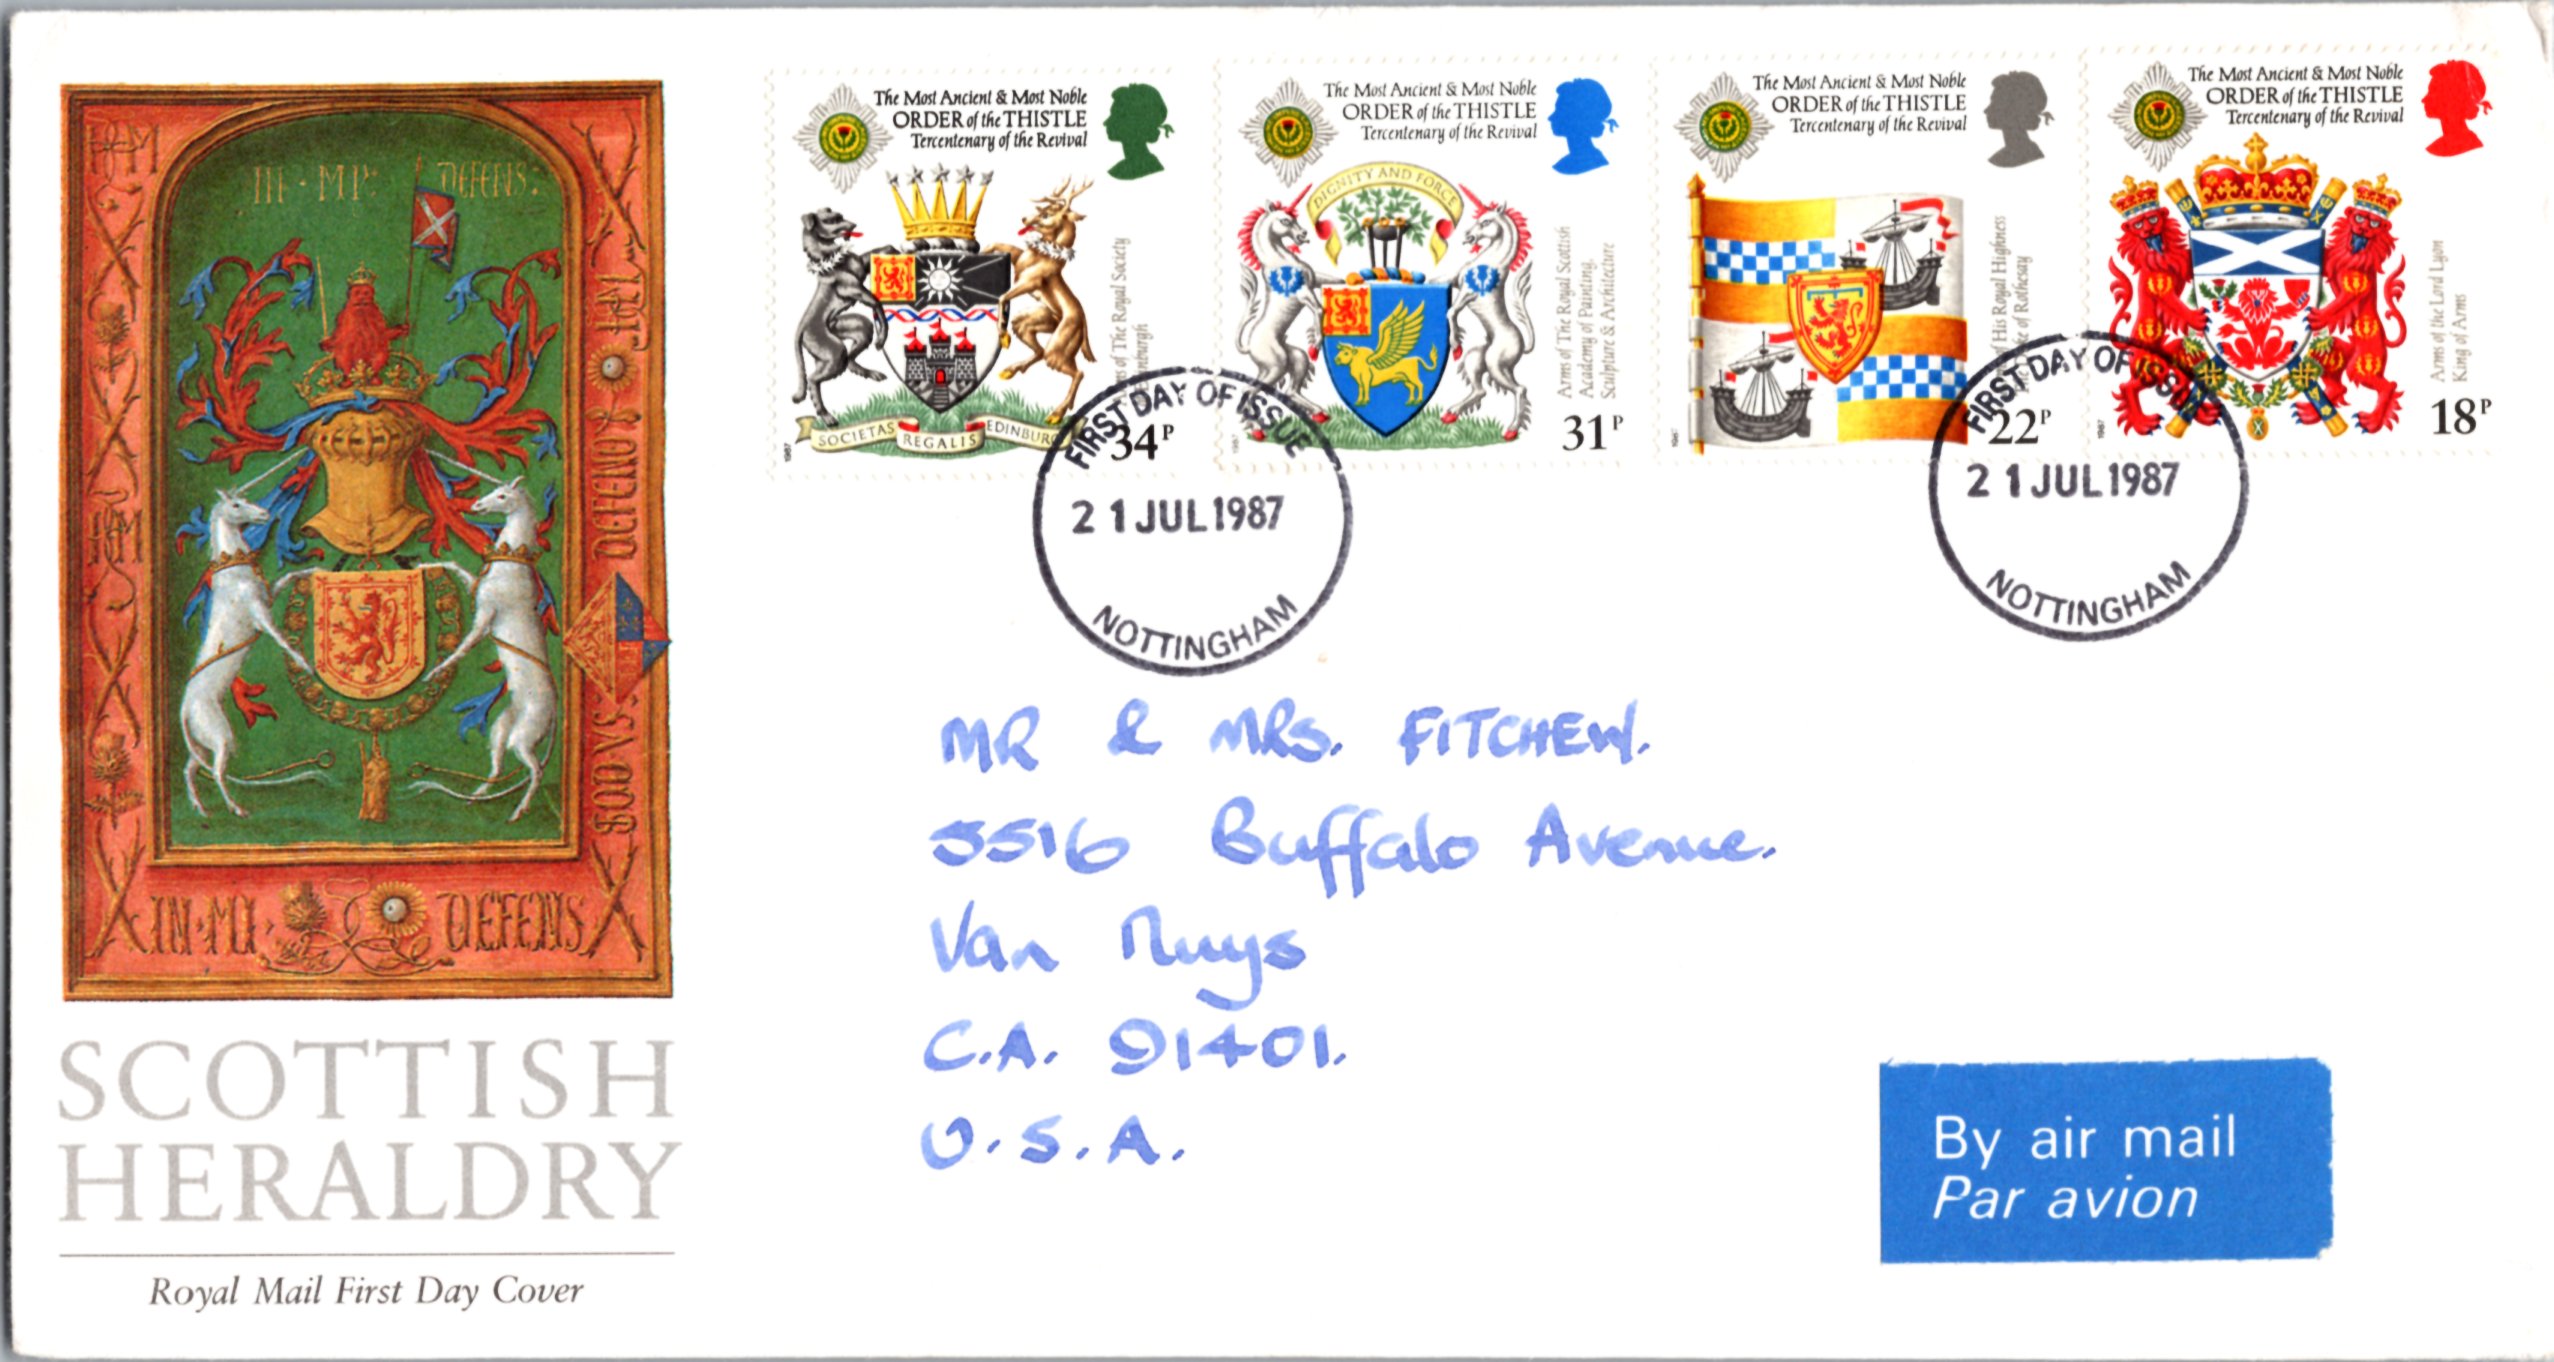 III · MI DEFENS:
DEFEND
IN · MI · DEFENS
SCOTTISH
HERALDRY
Royal Mail First Day Cover
The Most Ancient & Most Noble
ORDER of the THISTLE
Tercentenary of the Revival
SOCIETAS REGALIS EDINBURG
of The Royal Society
1987
34P
The Most Ancient & Most Noble
ORDER of the THISTLE
Tercentenary of the Revival
DIGNITY AND FORCE
Arms of The Royal Scottish
Academy of Painting,
Sculpture & Architecture
1987
31P
The Most Ancient & Most Noble
ORDER of the THISTLE
Tercentenary of the Revival
of His Royal Highness
of Rothesay
1987
22P
The Most Ancient & Most Noble
ORDER of the THISTLE
Tercentenary of the Revival
Arms of the Lord Lyon
King of Arms
1987
18P
FIRST DAY OF ISSUE
21 JUL 1987
NOTTINGHAM
FIRST DAY OF ISSUE
21 JUL 1987
NOTTINGHAM
MR & MRS. FITCHEW.
5516 Buffalo Avenue.
Van Nuys
C.A. 91401.
U.S.A.
By air mail
Par avion